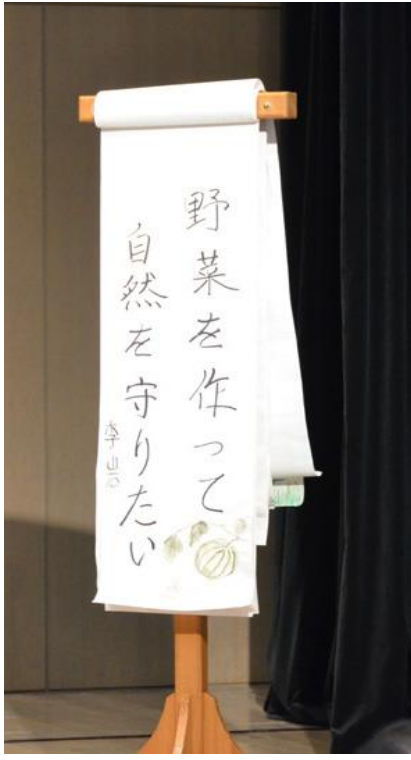 野菜を作って
自然を守りたい